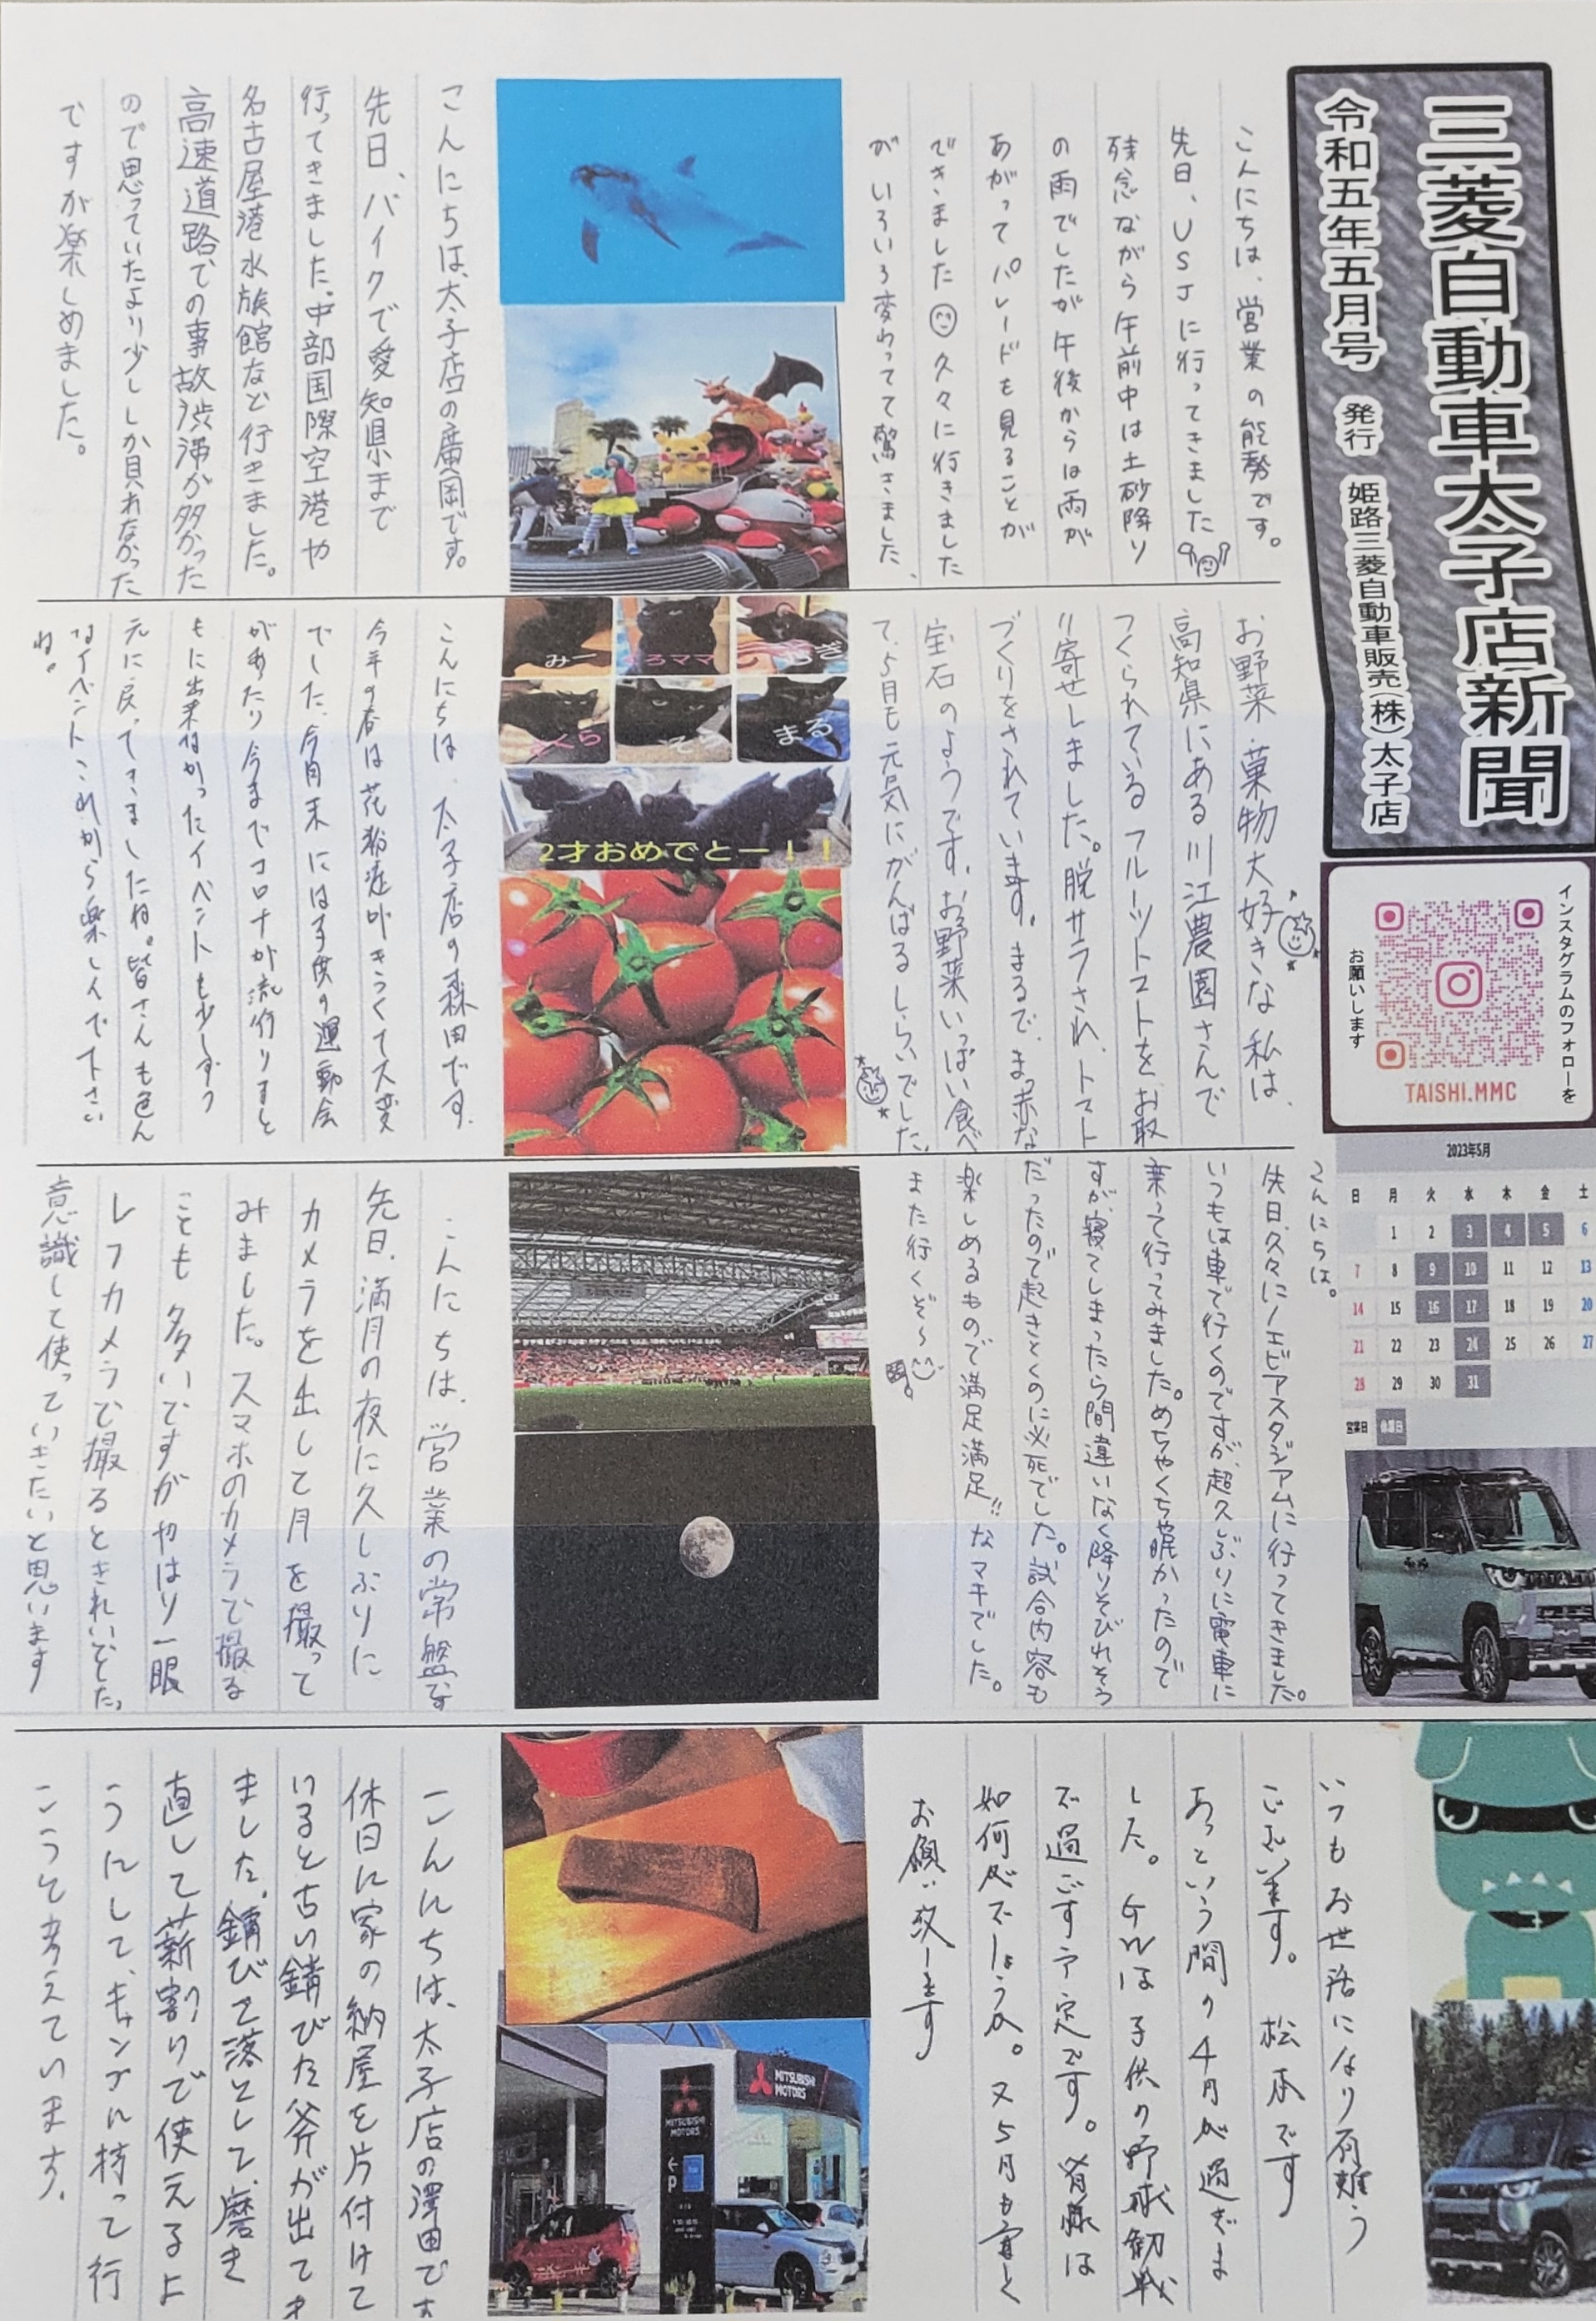 三菱自動車太子店新聞
令和五年五月号　発行　姫路三菱自動車販売(株)太子店
インスタグラムのフォローを
お願いします
TAISHI.MMC
2023年5月
日 月 火 水 木 金 土
1 2 3 4 5 6
7 8 9 10 11 12 13
14 15 16 17 18 19 20
21 22 23 24 25 26 27
28 29 30 31
営業日
こんにちは、営業の能勢です。
先日、USJに行ってきました
残念ながら午前中は土砂降り
の雨でしたが午後からは雨が
あがってパレードも見ることが
できました 久々に行きました
がいろいろ変わってて驚きました、
こんにちは、太子店の廣岡です。
先日、バイクで愛知県まで
行ってきました。中部国際空港や
名古屋港水族館など行きました。
高速道路での事故渋滞が多かった
ので思っていたより少ししか見れなかった
ですが楽しめました。
お野菜・菓物大好きな私は、
高知県にある川江農園さんで
つくられているフルーツトマトをお取
り寄せしました。脱サラされ、トマト
づくりをされています。まるで、まっ赤な
宝石のようです。お野菜いっぱい食べ
て、5月も元気にがんばるしらいでした。
みー
ろママ
ぎ
くら
そら
まる
2才おめでとー！！
こんにちは、太子店の森田です。
今年の春は花粉症がきつくて大変
でした、今月末には子供の運動会
があったり今までコロナが流行りずっと
もに出来なかったイベントも少しずつ
元に戻ってきましたね。皆さんも色ん
なイベントこれから楽しんで下さい
ね。
こんにちは。
先日、久々にノエビアスタジアムに行ってきました。
いつもは車で行くのですが、超久しぶりに電車に
乗って行ってみました。めちゃくちゃ眠かったので
すが、寝てしまったら間違いなく降りそびれそう
だったので起きとくのに必死でした。試合内容も
楽しめるもので満足満足!!なマキでした。
また行くぞ〜
こんにちは、営業の常盤な
先日、満月の夜に久しぶりに
カメラを出して月を撮って
みました。スマホのカメラで撮る
ことも多いですがやはり一眼
レフカメラで撮るときれいでした、
意識して使っていきたいと思います
いつもお世話になり有難う
ございます。松本です
あっという間の4月が過ぎま
した。GWは子供の野球観戦
で過ごす予定です。皆様は
如何がでしょうか。又5月も宜しく
お願い致します
MITSUBISHI MOTORS
MITSUBISHI MOTORS
P
こんにちは、太子店の澤田です
休日に家の納屋を片付けて
いると古い錆びた斧が出てき
ました、錆びて落として、磨き
直して薪割りで使えるよ
うにして、キャンプに持って行
こうと考えています。